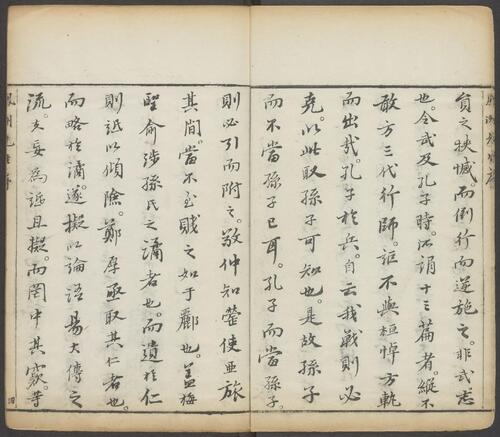 員之挾憾。而倒行而逆施之。非武志
也。令武及孔子時。所謂十三篇者。縱不
敢方三代行師。詎不與桓悼方軌
而出哉。孔子於兵。自云我戰則必
克。以此取孫子可知也。是故孫子
而不當孫子已耳。孔子而當孫子。
則必引而附之。敬仲知罃使亞旅
其間。當不至賤之如于酈也。蓋梅
聖俞涉孫氏之譎者也。而遺於仁
則詆以傾險。鄭厚亟取其仁者也。
而略於譎。遂擬以論語易大傳之
流。夫妄為詆且擬。而罔中其窾。等
四